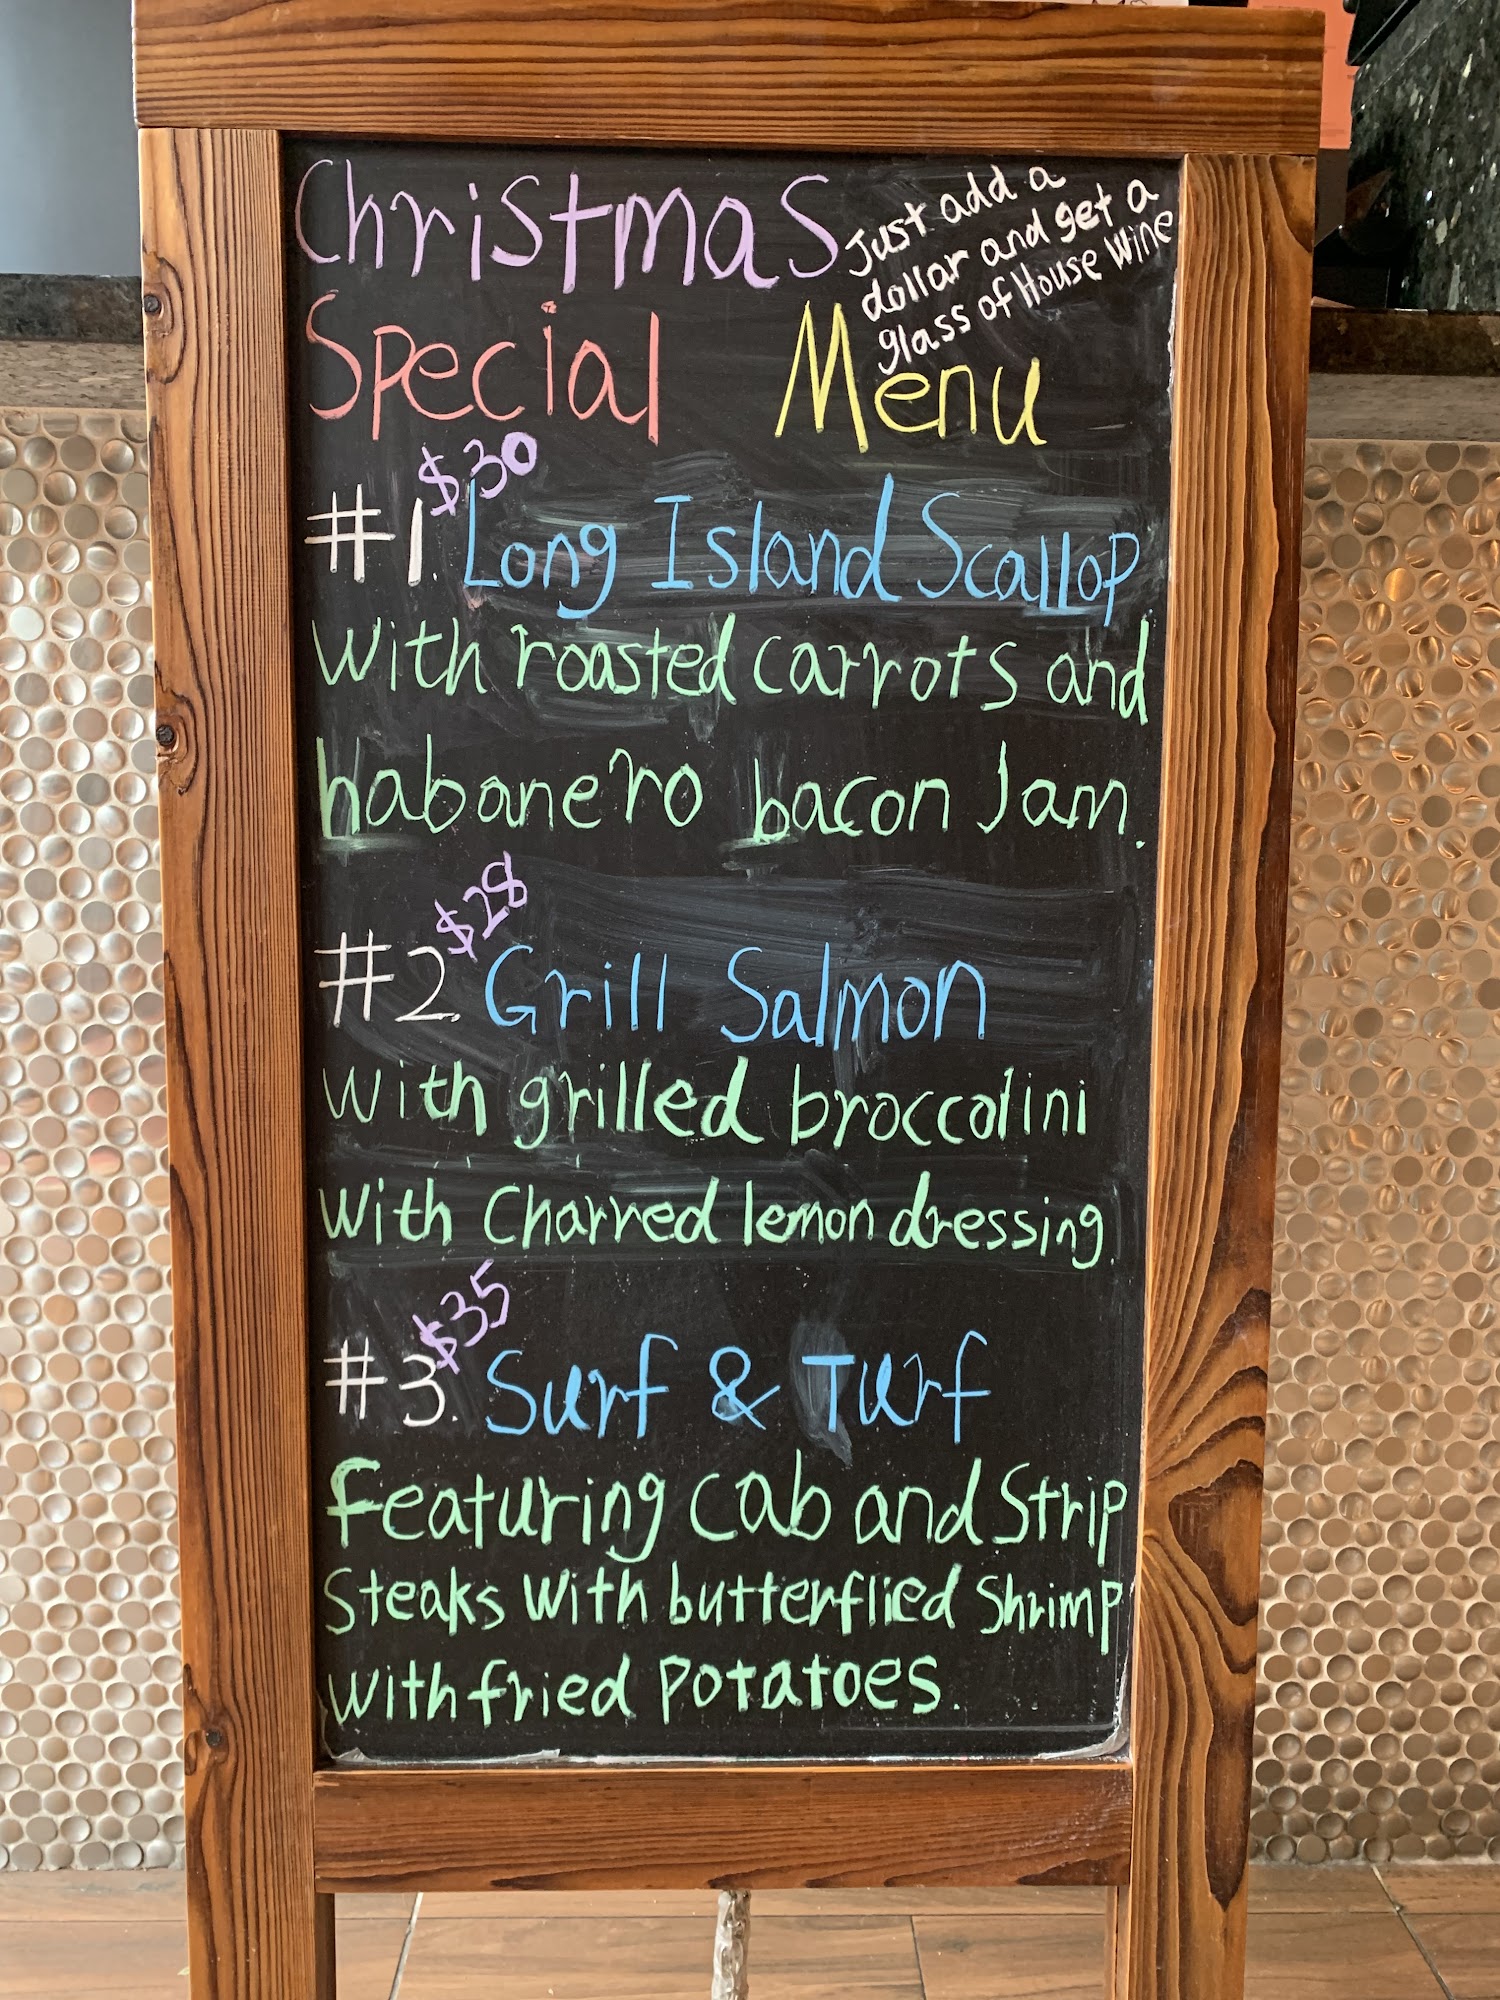 Christmas
Just add a
dollar and get a
glass of House Wine
Special Menu
$30
#1. Long Island Scallop
With roasted carrots and
habanero bacon Jam.
$28
#2. Grill Salmon
With grilled broccolini
With Charred lemon dressing.
$35
#3. Surf & Turf
Featuring Cab and Strip
Steaks With butterflied Shrimp
With fried Potatoes.